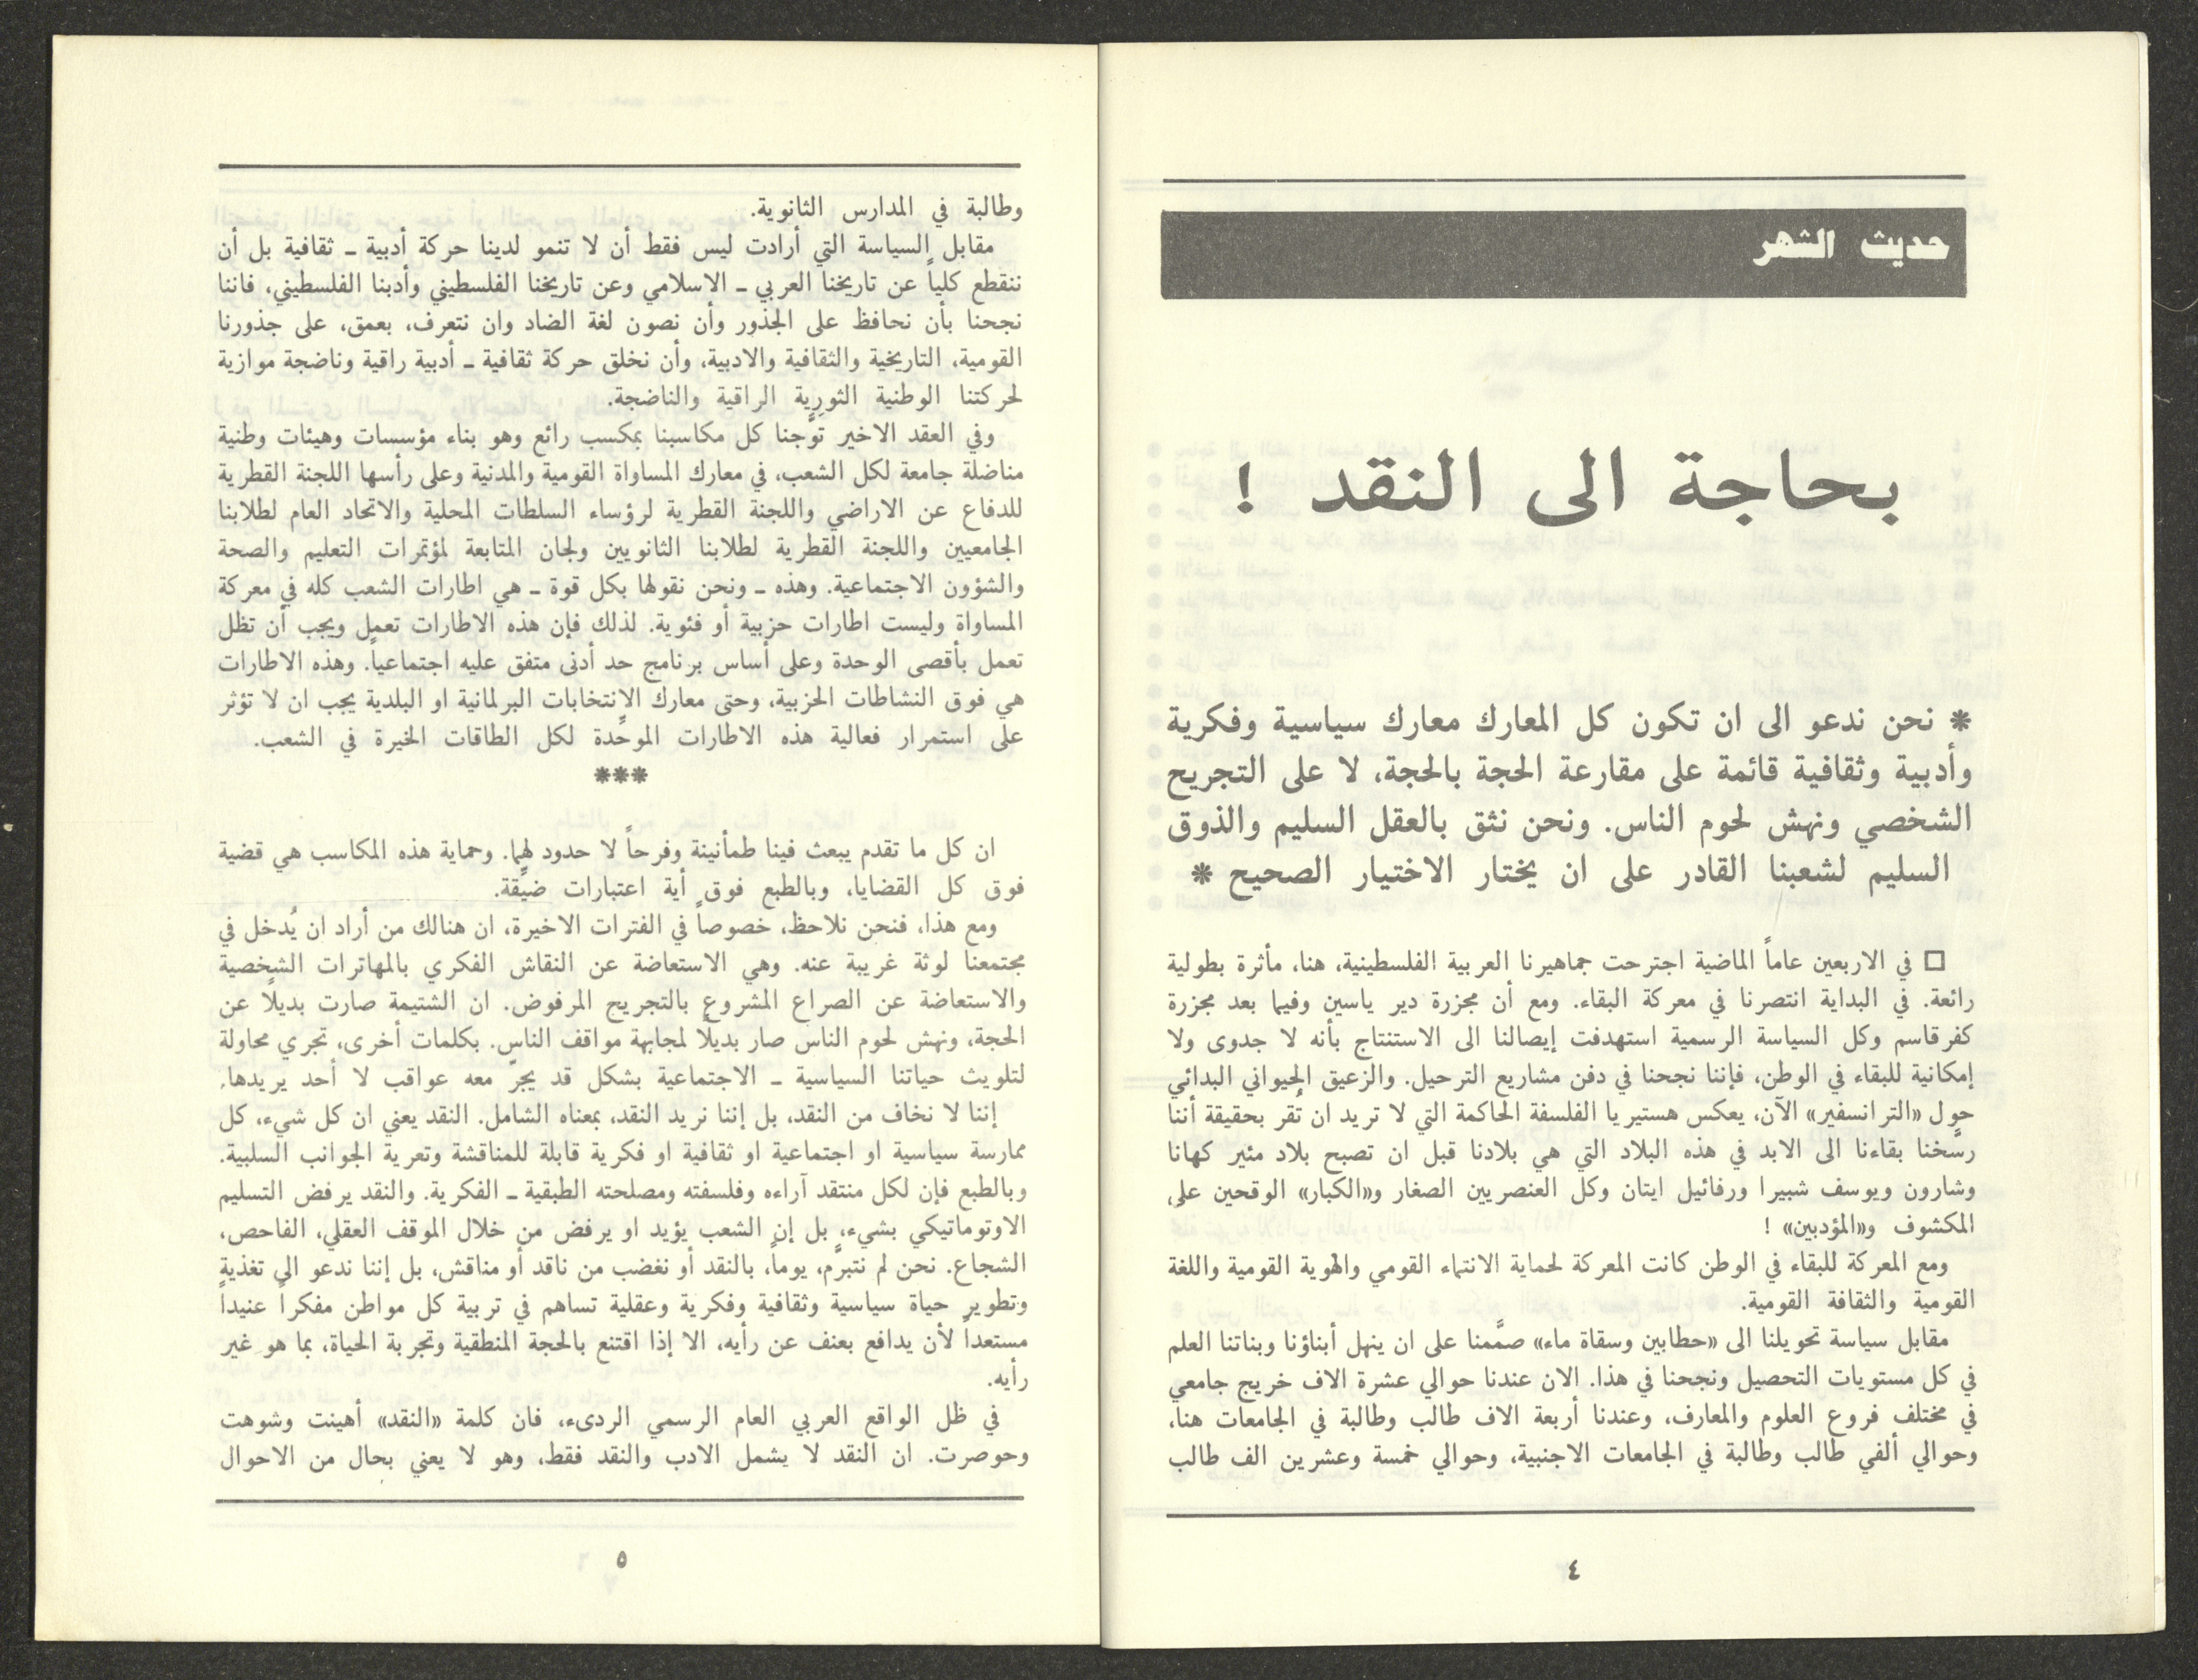 حديث الشهر
بحاجة الى النقد !
* نحن ندعو الى ان تكون كل المعارك معارك سياسية وفكرية
وأدبية وثقافية قائمة على مقارعة الحجة بالحجة، لا على التجريح
الشخصي ونهش لحوم الناس. ونحن نثق بالعقل السليم والذوق
السليم لشعبنا القادر على ان يختار الاختيار الصحيح *
□ في الاربعين عاماً الماضية اجترحت جماهيرنا العربية الفلسطينية، هنا، مأثرة بطولية
رائعة. في البداية انتصرنا في معركة البقاء. ومع أن مجزرة دير ياسين وفيما بعد مجزرة
كفرقاسم وكل السياسة الرسمية استهدفت إيصالنا الى الاستنتاج بأنه لا جدوى ولا
إمكانية للبقاء في الوطن، فإننا نجحنا في دفن مشاريع الترحيل. والزعيق الحيواني البدائي
حول «الترانسفير» الآن، يعكس هستيريا الفلسفة الحاكمة التي لا تريد ان تُقر بحقيقة أننا
رسَّخنا بقاءنا الى الابد في هذه البلاد التي هي بلادنا قبل ان تصبح بلاد مئير كهانا
وشارون ويوسف شبيرا ورفائيل ايتان وكل العنصريين الصغار و«الكبار» الوقحين على
المكشوف و«المؤدبين» !
ومع المعركة للبقاء في الوطن كانت المعركة لحماية الانتماء القومي والهوية القومية واللغة
القومية والثقافة القومية.
مقابل سياسة تحويلنا الى «حطابين وسقاة ماء» صمَّمنا على ان ينهل أبناؤنا وبناتنا العلم
في كل مستويات التحصيل ونجحنا في هذا. الان عندنا حوالي عشرة الاف خريج جامعي
في مختلف فروع العلوم والمعارف، وعندنا أربعة الاف طالب وطالبة في الجامعات هنا،
وحوالي ألفي طالب وطالبة في الجامعات الاجنبية، وحوالي خمسة وعشرين الف طالب
٤
وطالبة في المدارس الثانوية.
مقابل السياسة التي أرادت ليس فقط أن لا تنمو لدينا حركة أدبية ـ ثقافية بل أن
ننقطع كلياً عن تاريخنا العربي ـ الاسلامي وعن تاريخنا الفلسطيني وأدبنا الفلسطيني، فاننا
نجحنا بأن نحافظ على الجذور وأن نصون لغة الضاد وان نتعرف، بعمق، على جذورنا
القومية، التاريخية والثقافية والادبية، وأن نخلق حركة ثقافية ـ أدبية راقية وناضجة موازية
لحركتنا الوطنية الثورية الراقية والناضجة.
وفي العقد الاخير توَّجنا كل مكاسبنا بمكسب رائع وهو بناء مؤسسات وهيئات وطنية
مناضلة جامعة لكل الشعب، في معارك المساواة القومية والمدنية وعلى رأسها اللجنة القطرية
للدفاع عن الاراضي واللجنة القطرية لرؤساء السلطات المحلية والاتحاد العام لطلابنا
الجامعيين واللجنة القطرية لطلابنا الثانويين ولجان المتابعة لمؤتمرات التعليم والصحة
والشؤون الاجتماعية. وهذه ـ ونحن نقولها بكل قوة ـ هي اطارات الشعب كله في معركة
المساواة وليست اطارات حزبية أو فئوية. لذلك فإن هذه الاطارات تعمل ويجب أن تظل
تعمل بأقصى الوحدة وعلى أساس برنامج حد أدنى متفق عليه اجتماعياً. وهذه الاطارات
هي فوق النشاطات الحزبية، وحتى معارك الانتخابات البرلمانية او البلدية يجب ان لا تؤثر
على استمرار فعالية هذه الاطارات الموحَّدة لكل الطاقات الخيرة في الشعب.
***
ان كل ما تقدم يبعث فينا طمأنينة وفرحاً لا حدود لهما. وحماية هذه المكاسب هي قضية
فوق كل القضايا، وبالطبع فوق أية اعتبارات ضيِّقة.
ومع هذا، فنحن نلاحظ، خصوصاً في الفترات الاخيرة، ان هنالك من أراد ان يُدخل في
مجتمعنا لوثة غريبة عنه. وهي الاستعاضة عن النقاش الفكري بالمهاترات الشخصية
والاستعاضة عن الصراع المشروع بالتجريح المرفوض. ان الشتيمة صارت بديلًا عن
الحجة، ونهش لحوم الناس صار بديلًا لمجابهة مواقف الناس. بكلمات أخرى، تجري محاولة
لتلويث حياتنا السياسية ـ الاجتماعية بشكل قد يجرّ معه عواقب لا أحد يريدها.
إننا لا نخاف من النقد، بل إننا نريد النقد، بمعناه الشامل. النقد يعني ان كل شيء، كل
ممارسة سياسية او اجتماعية او ثقافية او فكرية قابلة للمناقشة وتعرية الجوانب السلبية.
وبالطبع فإن لكل منتقد آراءه وفلسفته ومصلحته الطبقية ـ الفكرية. والنقد يرفض التسليم
الاوتوماتيكي بشيء، بل إن الشعب يؤيد او يرفض من خلال الموقف العقلي، الفاحص،
الشجاع. نحن لم نتبرَّم، يوماً، بالنقد أو نغضب من ناقد أو مناقش، بل إننا ندعو الى تغذية
وتطوير حياة سياسية وثقافية وفكرية وعقلية تساهم في تربية كل مواطن مفكراً عنيداً
مستعداً لأن يدافع بعنف عن رأيه، الا إذا اقتنع بالحجة المنطقية وتجربة الحياة، بما هو غير
رأيه.
في ظل الواقع العربي العام الرسمي الردىء، فان كلمة «النقد» أهينت وشوهت
وحوصرت. ان النقد لا يشمل الادب والنقد فقط، وهو لا يعني بحال من الاحوال
٥